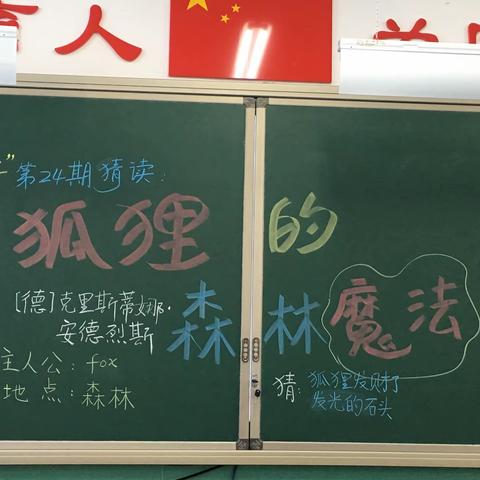 人
第24期猜读:
狐狸的
森林魔法
[德]克里斯蒂娜·
安德烈斯
主人公:fox
地点:森林
猜:狐狸发财了
发光的石头